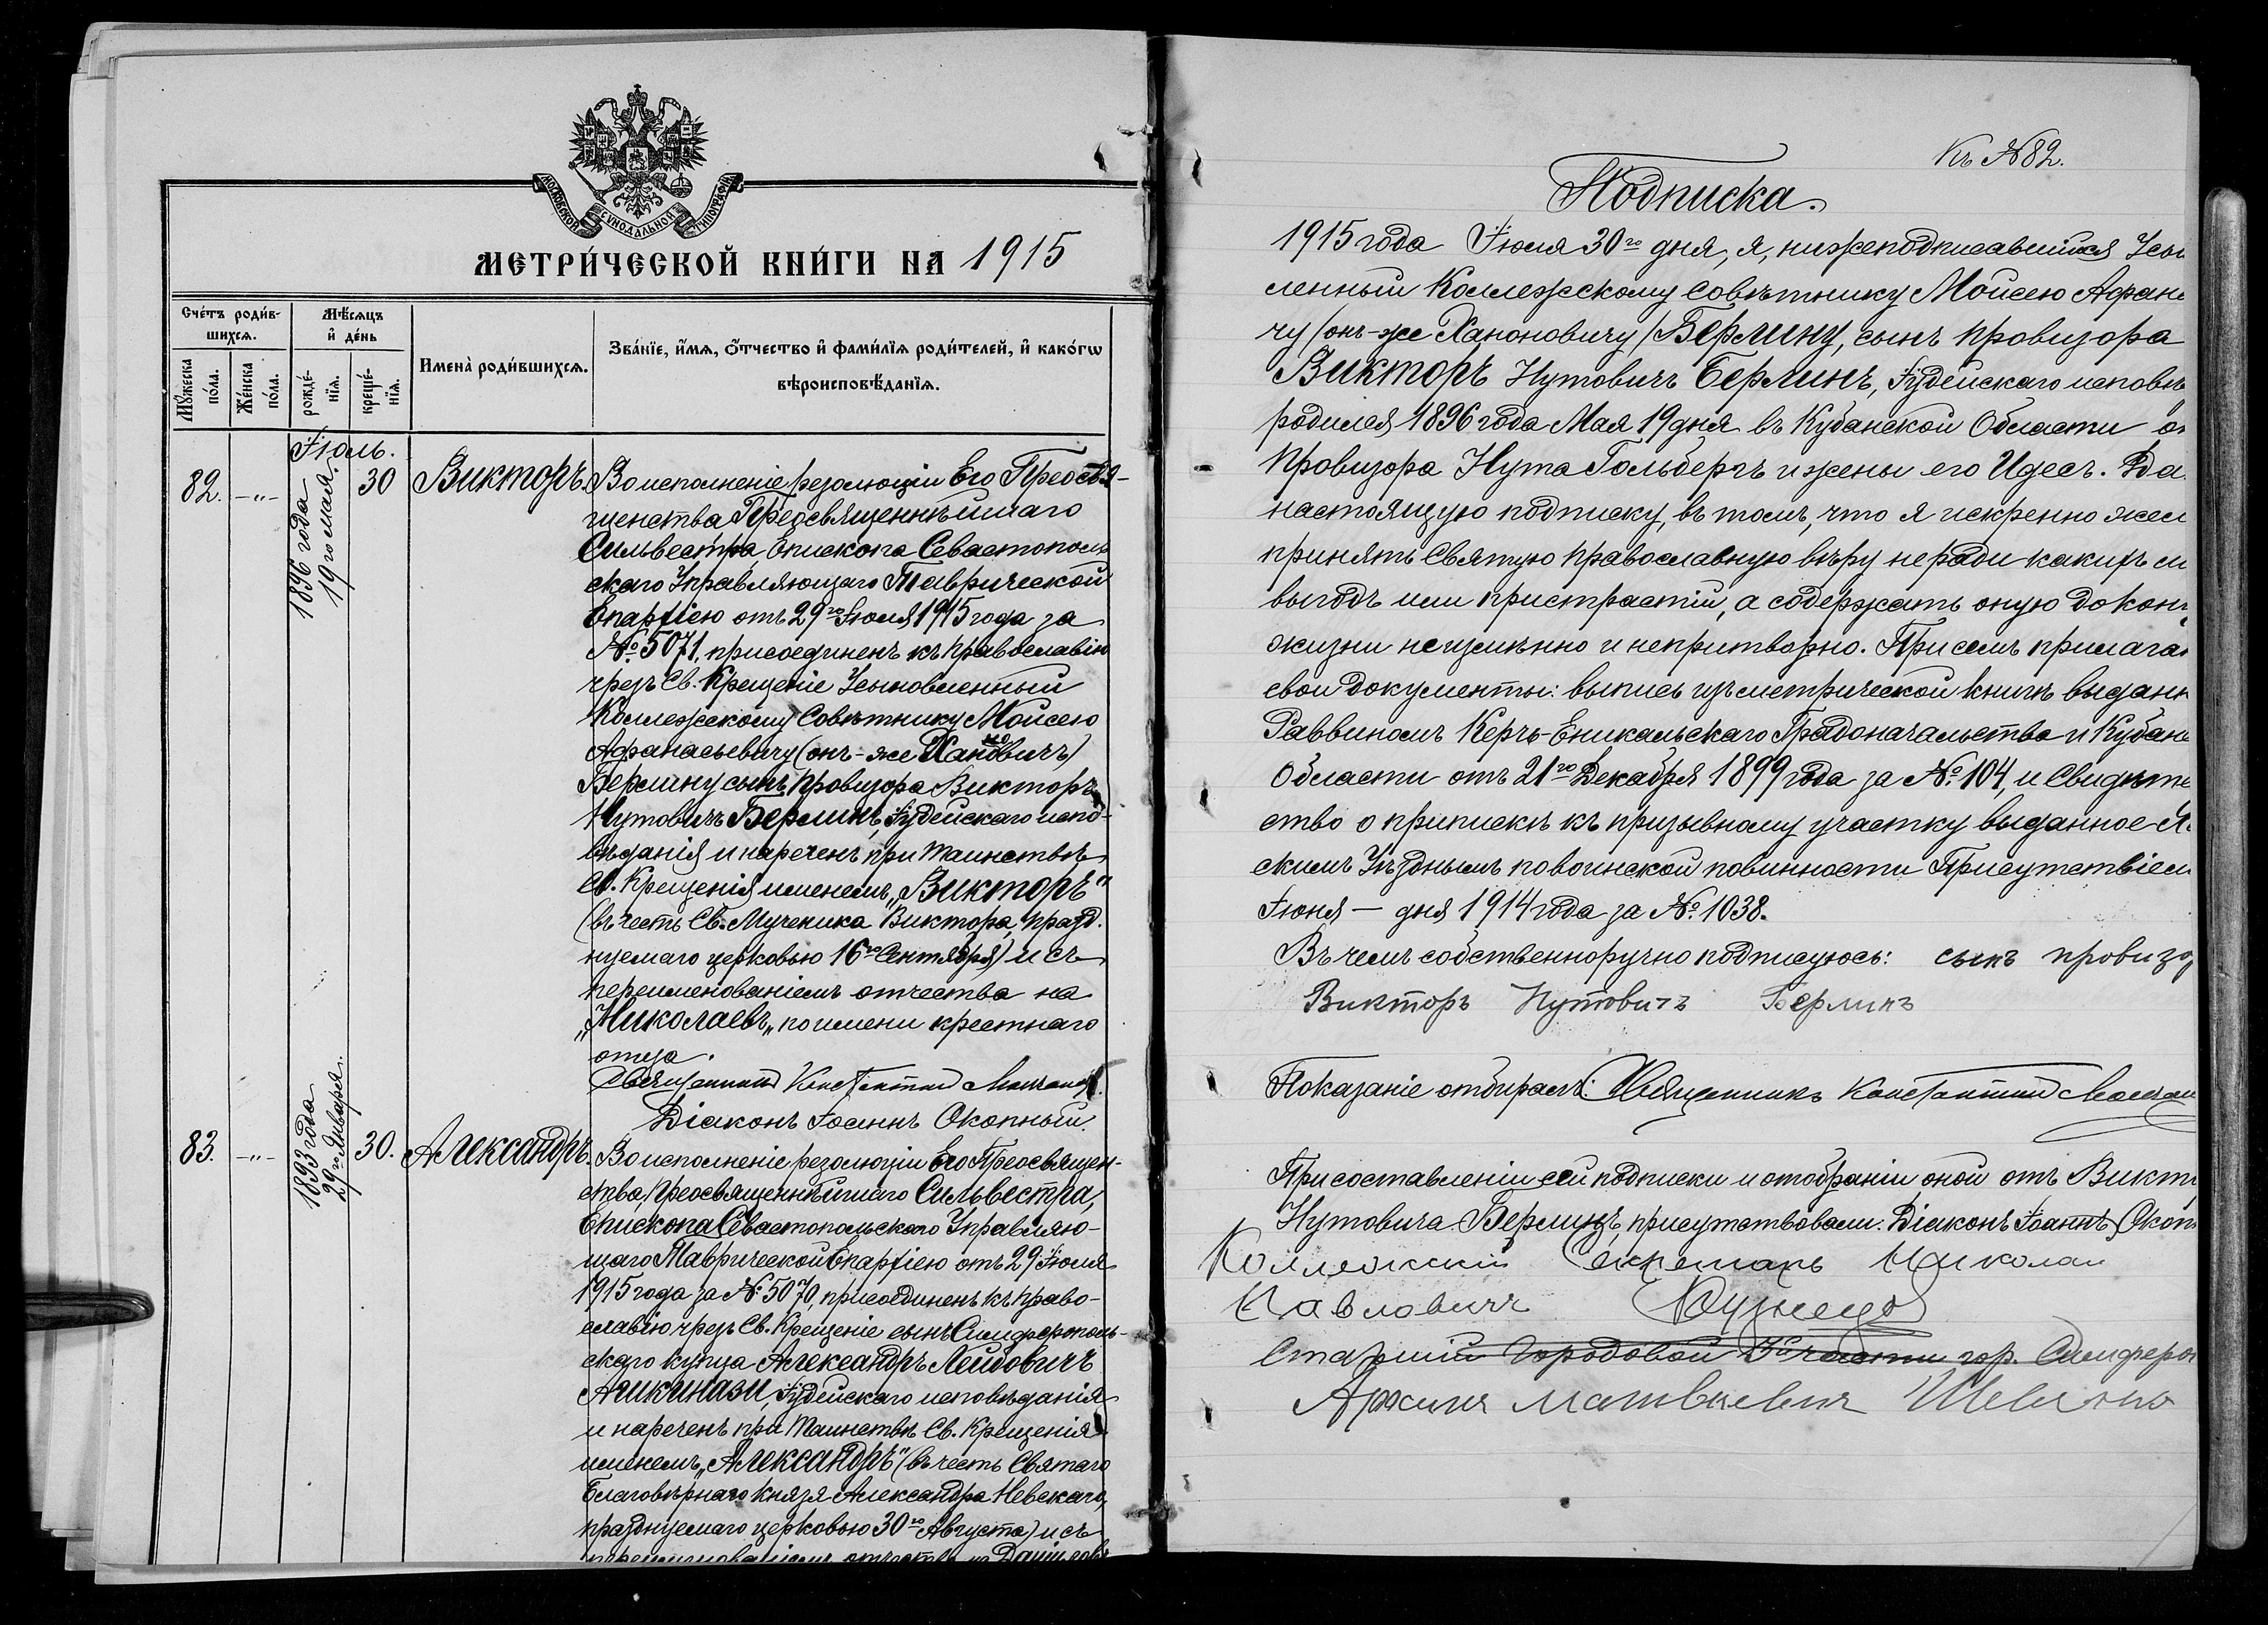 МОСКОВСКОЙ СѴНОДАЛЬНОЙ ТИПОГРАФІИ
МЕТРИ́ЧЕСКОЙ КНИ́ГИ НА 1915
Сче́тъ роди́в-
шихся.
Мѣ́сяцъ
и҆ де́нь
Мꙋ́жеска
по́ла.
Же́нска
по́ла.
рожде́-
нїя.
креще́-
нїя.
Имена̀ роди́вшихся.
Зва́нїе, и҆́мя, ѻ҆́тчество и҆ фами́лїя роди́телей, и҆ како́гѡ
вѣроисповѣ́данїя.
Іюль.
82. -"- 1896 года 19го мая. 30 Викторъ.
Во исполненіе резолюціи Его Преосвя-
щенства Преосвященнѣйшаго
Сильвестра, Епископа Севастополь
скаго Управляющаго Таврической
Епархіею отъ 29го Іюля 1915 года за
№ 5071, присоединенъ къ православію
чрезъ Св. Крещеніе Усыновленный
Коллежскому Совѣтнику Мойсею
Афанасьевичу (онъ-же Хановичъ)
но
Берлину сынъ провизора Викторъ
Нутовичъ Берлинъ, Іудейскаго испо-
вѣданія и нареченъ при таинствѣ
Св. Крещенія именемъ „Викторъ"
(въ честь Св. Мученика Виктора, празд.
нуемаго церковью 16го Сентября) и съ
переименованіемъ отчества на
„Николаевъ„ по имени крестнаго
отца.
Священникъ Константинъ
Діаконъ Іоаннъ Окопный.
83. -"- 1893 года 29го Января. 30. Александръ.
Во исполненіе резолюціи Его Преосвящен-
ства, Преосвященнѣйшаго Сильвестра,
Епископа Севастопольскаго Управляю-
щаго Таврической Епархіею отъ 29 Іюля
1915 года за № 5070, присоединенъ къ право-
славію чрезъ Св. Крещеніе сынъ Симферополь-
скаго купца Александръ Лейбовичъ
Ашкинази, Іудейскаго исповѣданія
и нареченъ при Таинствѣ Св. Крещенія
именемъ „Александръ" (въ честь Святаго
Благовѣрнаго Князя Александра Невскаго,
празднуемаго церковью 30го Августа) и съ
переименованіемъ отчества на
Къ №82.
Подписка.
1915 года Іюля 30го дня, я, нижеподписавшійся Усын
ленный Коллежскому Совѣтнику Мойсею Афан
чу (онъ-же Ханоновичу) Берлину, сынъ провизора
Викторъ Нутовичъ Берлинъ, Іудейскаго исповѣ
родился 1896 года Мая 19 дня въ Кубанской Области о
Провизора Нута Гольбергъ и жены его Идесъ. Да
настоящую подписку, въ томъ, что я искренно жел
принять Святую Православную вѣру не ради какихъ
выгодъ или пристрастій, а содержать оную до кон
жизни неизмѣнно и непритворно. При семъ прилага
свои документы: выпись изъ метрической книги выдан
Раввиномъ Керчь-Еникальскаго Градоначальства и Кубан
Области отъ 21го Декабря 1899 года за № 104, и Свидѣте
ство о припискѣ къ призывному участку выданное
скимъ Уѣзднымъ по воинской повинности Присутствіем
Іюня — дня 1914 года за № 1038.
Въ чемъ собственноручно подписуюсь: сынъ провизо
Викторъ Нутовичъ Берлинъ
Показаніе отбиралъ: Священникъ Константинъ
При составленіи сей подписки и отобраніи оной отъ Викт
Нутовича Берлинъ, присутствовали. Діаконъ Іоаннъ Окоп
Коллежский Секретарь Николай
Павловичъ Кузнецов
Старший Городовой части гор. Симферо
Матвѣевич